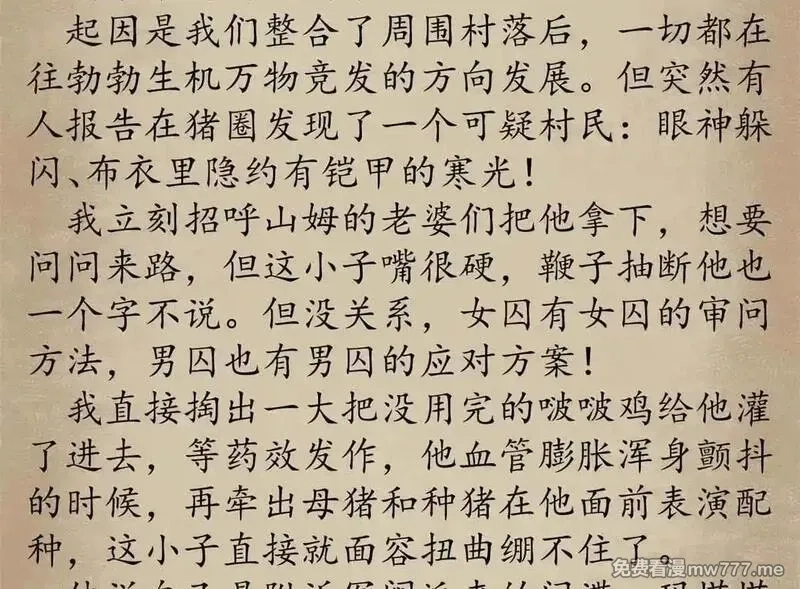 起因是我们整合了周围村落后，一切都在
往勃勃生机万物竞发的方向发展。但突然有
人报告在猪圈发现了一个可疑村民：眼神躲
闪、布衣里隐约有铠甲的寒光！
我立刻招呼山姆的老婆们把他拿下，想要
问问来路，但这小子嘴很硬，鞭子抽断他也
一个字不说。但没关系，女囚有女囚的审问
方法，男囚也有男囚的应对方案！
我直接掏出一大把没用完的啵啵鸡给他灌
了进去，等药效发作，他血管膨胀浑身颤抖
的时候，再牵出母猪和种猪在他面前表演配
种，这小子直接就面容扭曲绷不住了。
免费看漫mw777.me